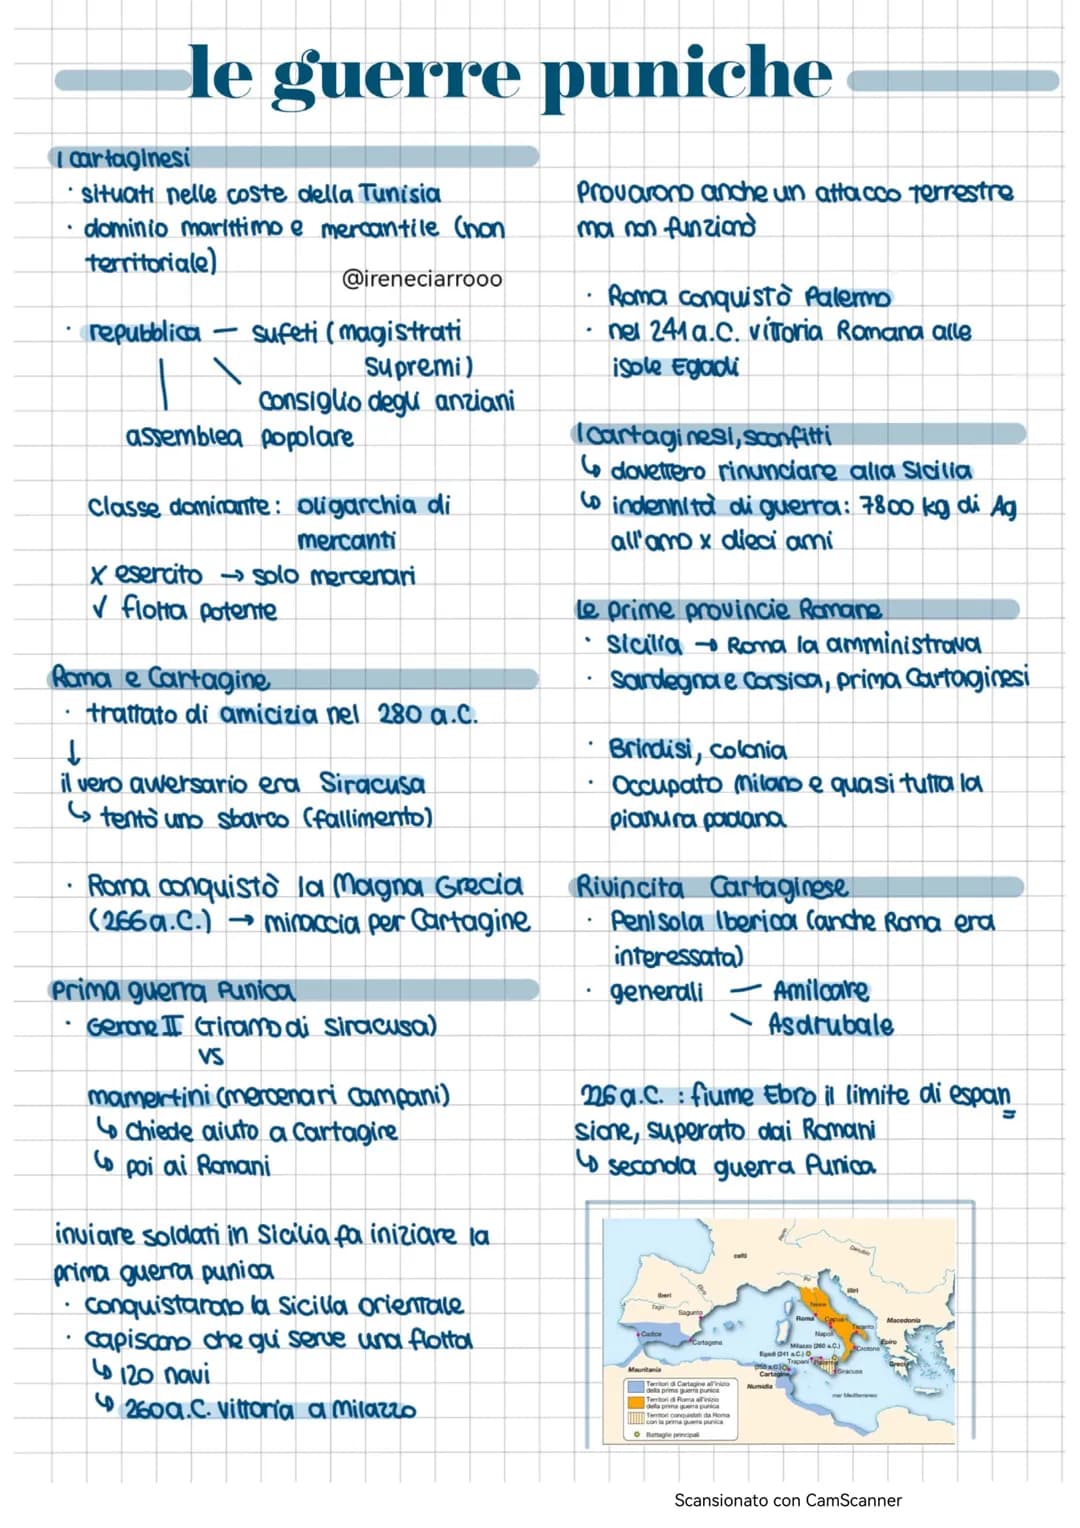 le guerre puniche
I cartaginesi
· situati nelle coste della Tunisia
· dominio marittimo e mercantile (non
territoriale)
@ireneciarrooo
· repubblica — sufeti (magistrati
supremi)
consiglio degli anziani
assemblea popolare
Classe dominante: oligarchia di
mercanti
x esercito → solo mercenari
√ flotta potente
Roma e Cartagine
· trattato di amicizia nel 280 a.C.
↓
il vero avversario era Siracusa
↳ tentò uno sbarco (fallimento)
· Roma conquistò la Magna Grecia
(266 a.C.) → minaccia per Cartagine
Prima guerra Punica
· Gerone II (Tiranno di Siracusa)
vs
mamertini (mercenari campani)
↳ chiede aiuto a Cartagine
↳ poi ai Romani
inviare soldati in Sicilia fa iniziare la
prima guerra punica
· conquistarono la Sicilia orientale
· capiscono che gli serve una flotta
↳ 120 navi
↳ 260 a.C. vittoria a Milazzo
Provarono anche un attacco terrestre
ma non funzionò
· Roma conquistò Palermo
· nel 241 a.C. vittoria Romana alle
isole Egadi
I cartaginesi, sconfitti
↳ dovettero rinunciare alla Sicilia
↳ indennità di guerra: 7800 kg di Ag
all'anno x dieci anni
le prime provincie Romane
· Sicilia → Roma la amministrava
· Sardegna e Corsica, prima Cartaginesi
· Brindisi, colonia
· Occupato Milano e quasi tutta la
pianura padana
Rivincita Cartaginese
· Penisola Iberica (anche Roma era
interessata)
· generali — Amilcare
Asdrubale
226 a.C. : fiume Ebro il limite di espan=
sione, superato dai Romani
↳ seconda guerra Punica
celti
Danubio
Iberi
Tago
Ebro
Sagunto
Cadice
Cartagena
Po
Illiri
Roma
Capua
Napoli
Taranto
Macedonia
Epiro
Crotone
Grecia
Milazzo (260 a.C.)
Egadi (241 a.C.)
Trapani
Palermo
Siracusa
Cartagine
Mauritania
Numidia
mar Mediterraneo
Territori di Cartagine all'inizio
della prima guerra punica
Territori di Roma all'inizio
della prima guerra punica
Territori conquistati da Roma
con la prima guerra punica
Battaglie principali
Scansionato con CamScanner